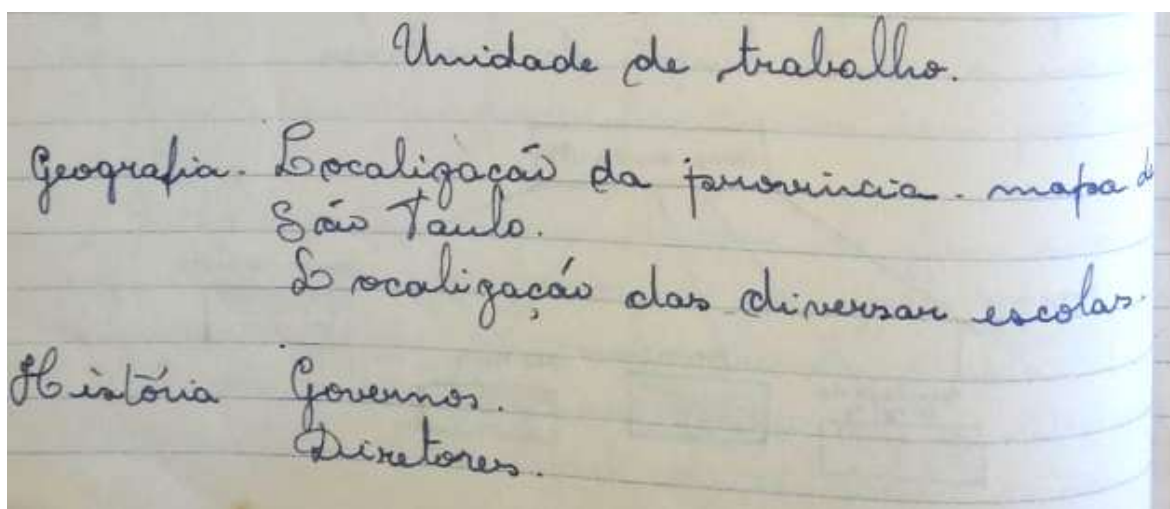 Unidade de trabalho.
Geografia. Localização da provincia. mapa de
São Paulo.
Localização das diversas escolas.
História Governos.
Diretores.